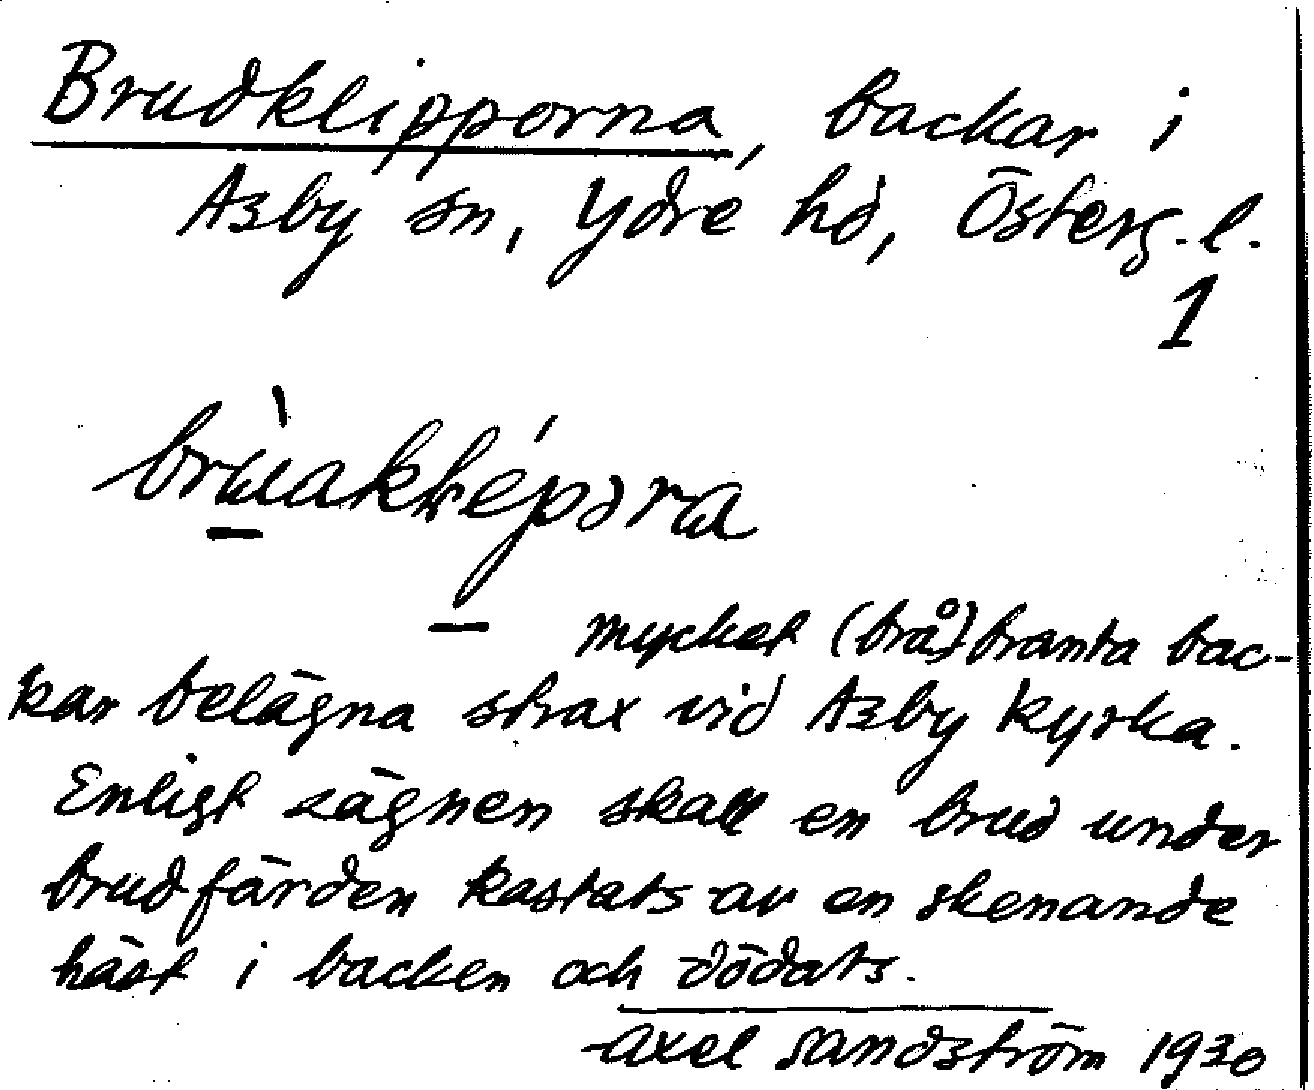 Brudklipporna, backar i
Asby sn, Ydre hd, Österg. l.
1
mycket (brå)branta bac-
kar belägna strax vid Asby kyrka.
Enligt sägnen skall en brud under
brudfärden kastats av en skenande
häst i backen och dödats.
Axel Sandström 1930